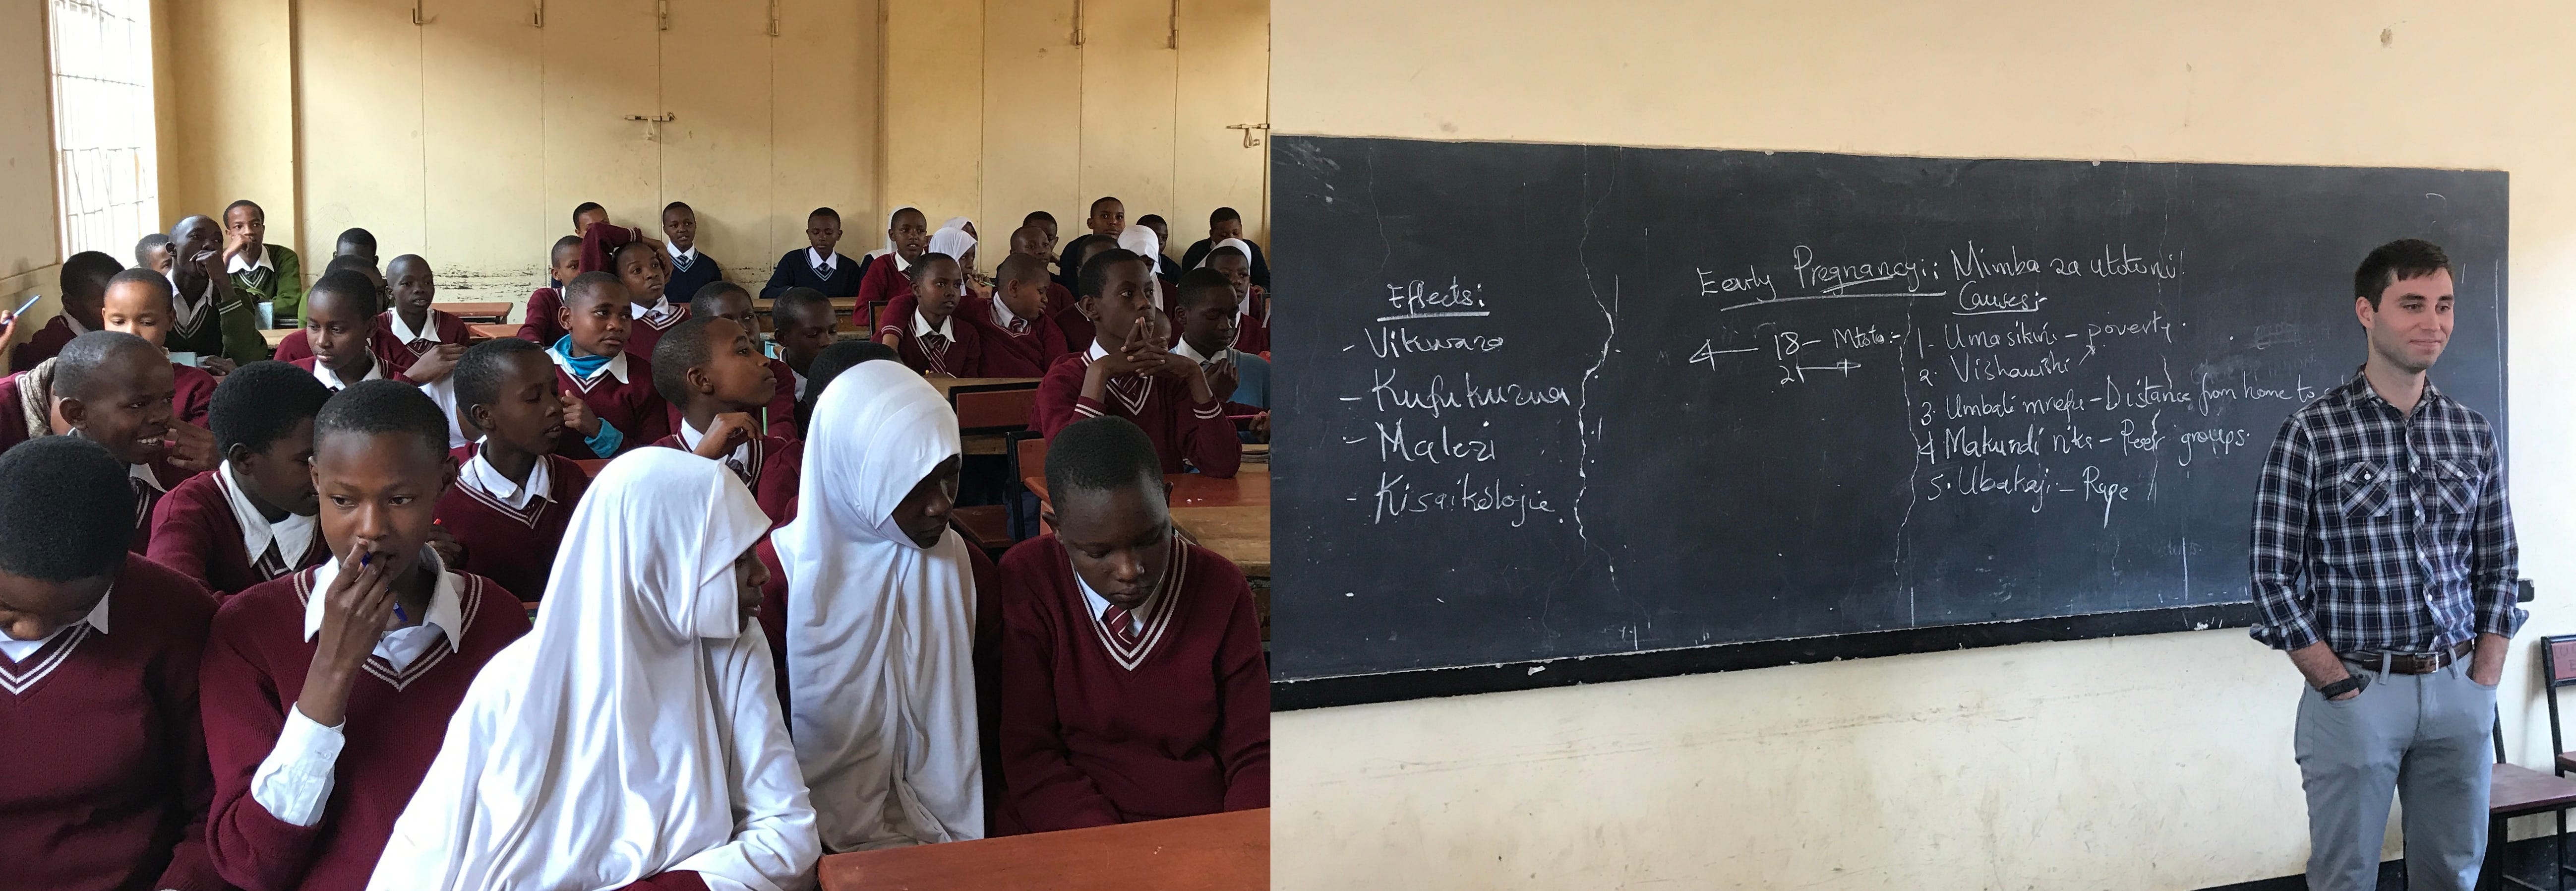 Effects:
- Vikwazo
- Kufukuzwa
- Malezi
- Kisaikolojia.
Early Pregnancy: Mimba za utotoni!
Causes:-
18 - Mtoto:-
21
1. Umasikini - poverty.
2. Vishawishi
3. Umbali mrefu - Distance from home to
4 Makundi rika - Peer groups.
5. Ubakaji - Rape